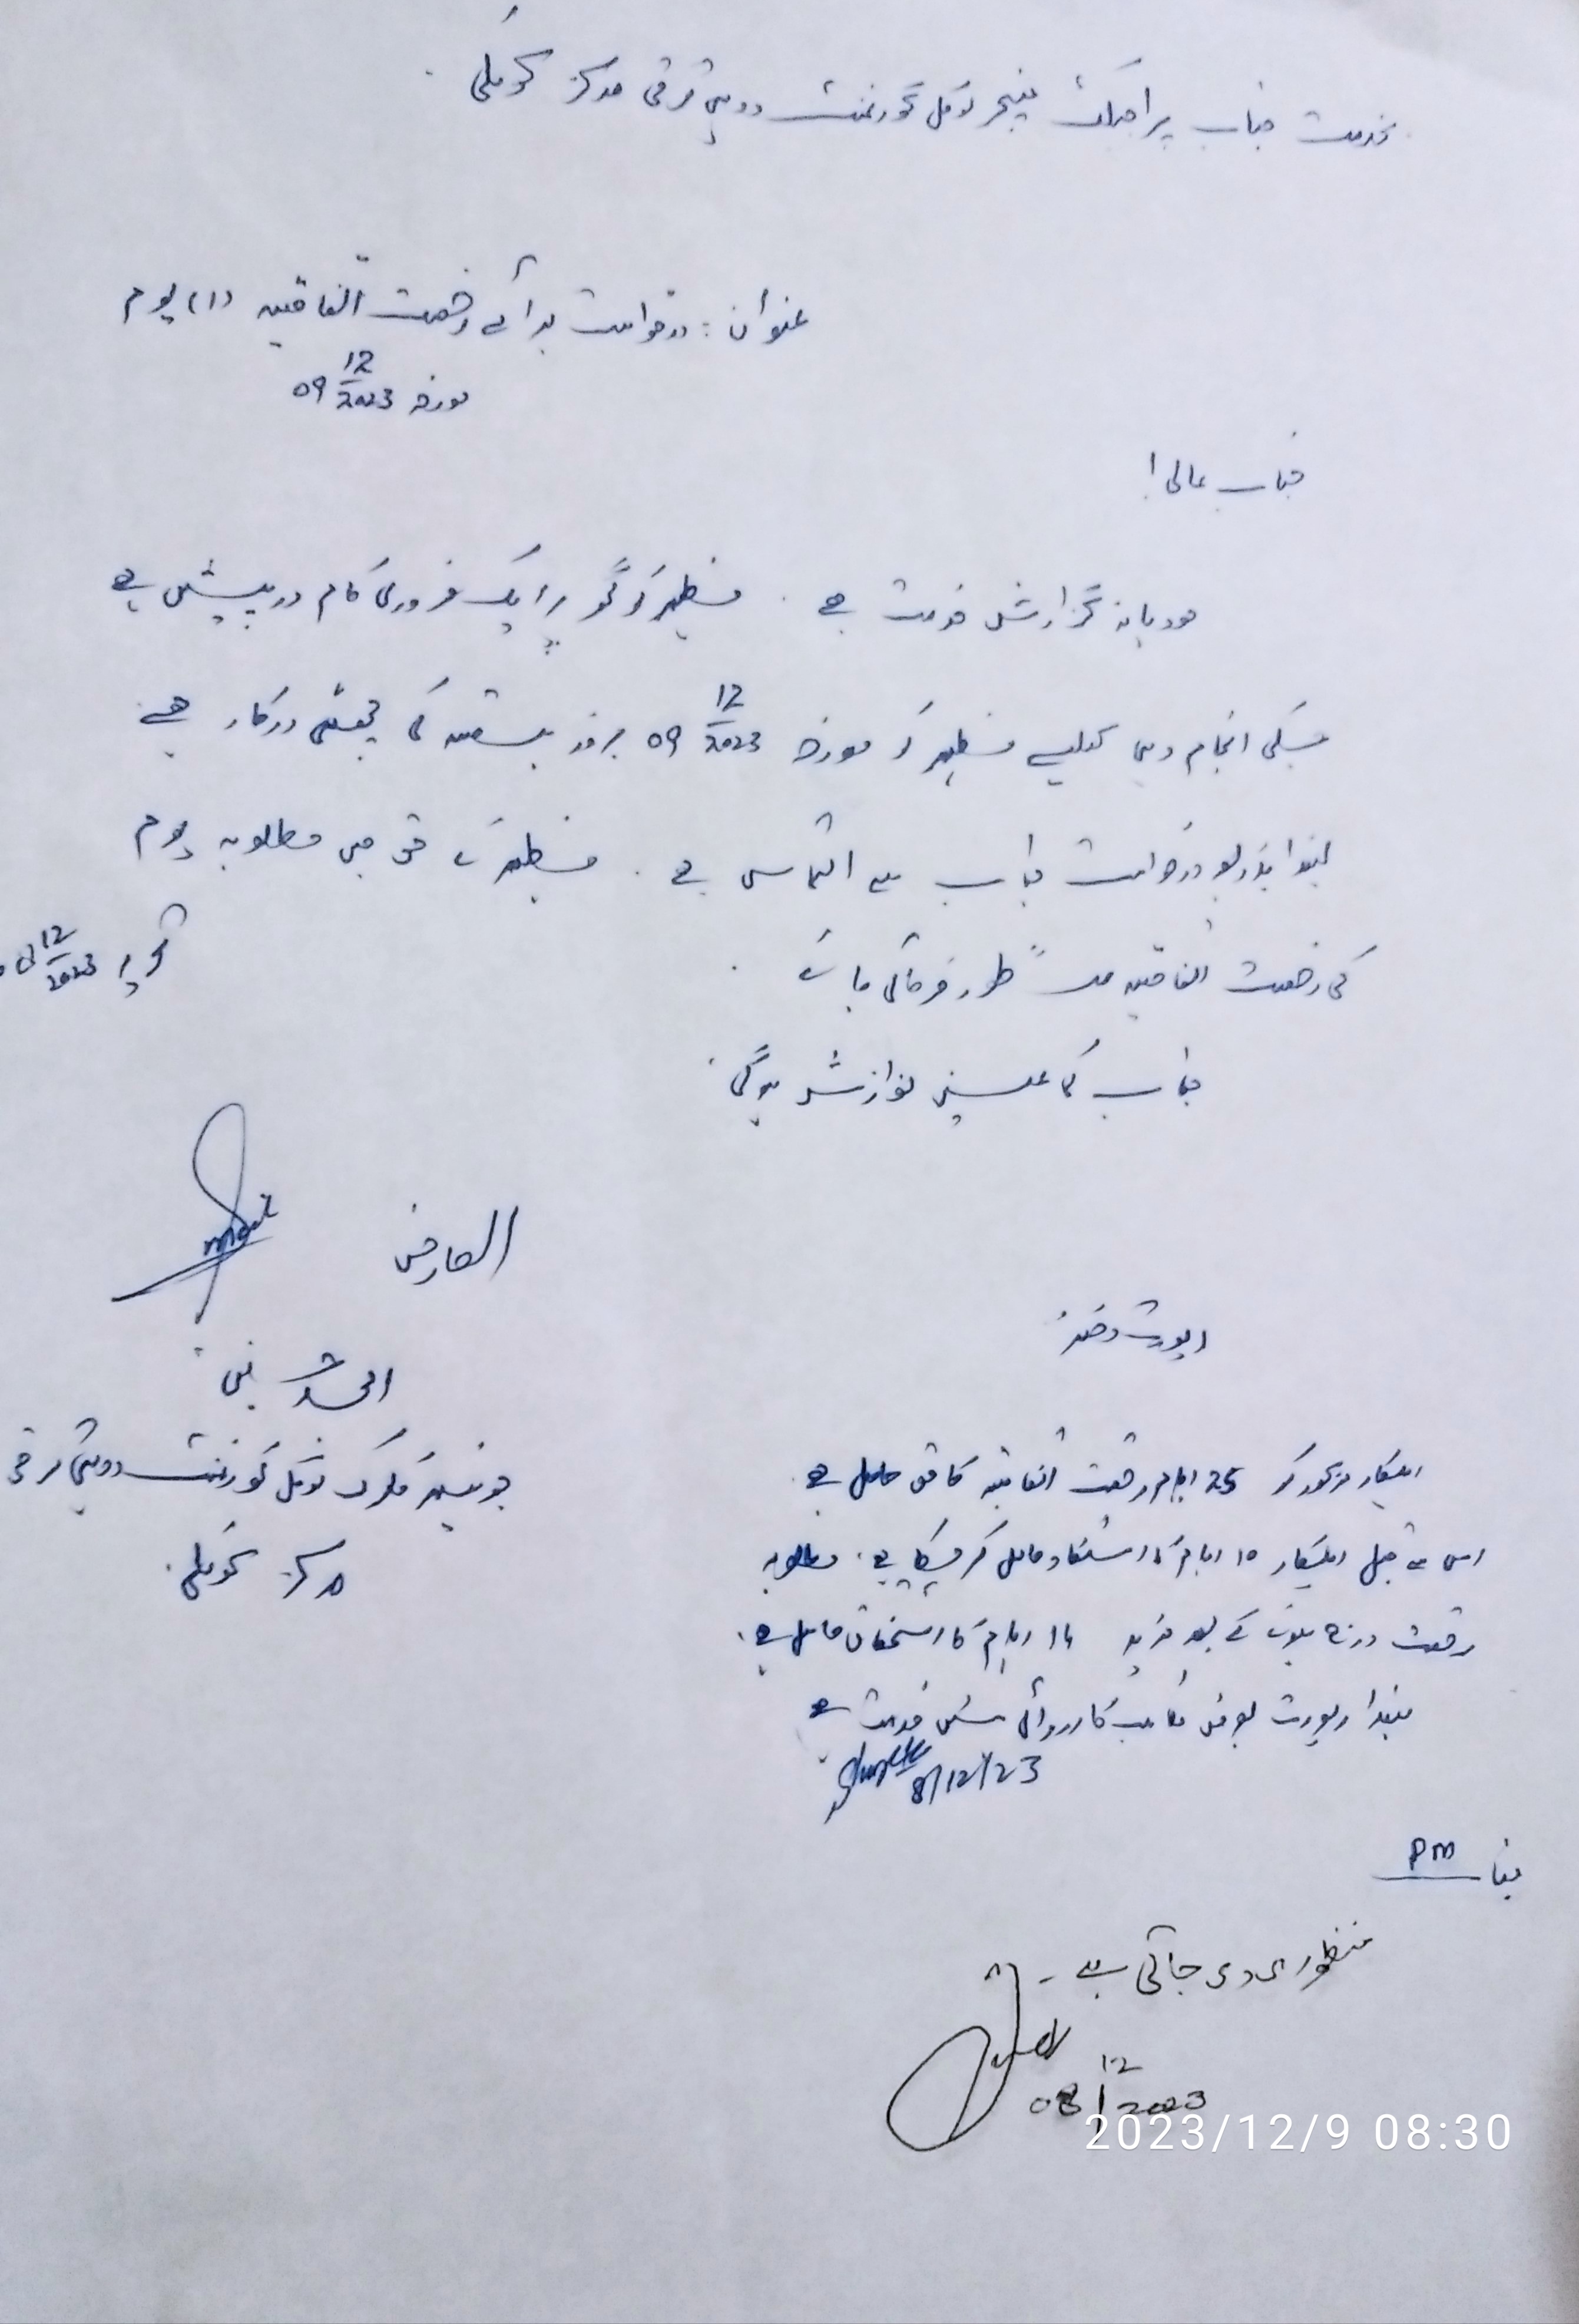 بخدمت جناب پراجیکٹ مینیجر لوکل گورنمنٹ و دیہی ترقی مرکز
عنوان: درخواست برائے رخصت اتفاقیہ (1) یوم
مورخہ 09 12/2023
جناب عالی!
مودبانہ گزارش خدمت ہے. مظہر کو گھر پر ایک ضروری کام درپیش ہے
جسکی انجام دہی کیلیے مظہر کو مورخہ 09 12/2023 بروز ہفتہ کی چھٹی درکار ہے.
لہذا بذریعہ درخواست جناب سے التماس ہے. مظہر کے حق میں مطلوبہ یوم
کی رخصت اتفاقیہ منظور فرمائی جائے.
تحریر 12/2023
جناب کی عین نوازش ہوگی.
العارض
جونیئر کلرک لوکل گورنمنٹ و دیہی ترقی
مرکز
رپورٹ دفتر
اہلیکار مذکور کو 25 ایام رخصت اتفاقیہ کا حق حاصل ہے.
اس سے قبل اہلیکار 10 ایام کا استفادہ حاصل کر چکا ہے. مطلوبہ
رخصت درج ہونے کے بعد مزید 14 ایام کا استحقاق حاصل ہے.
لہذا رپورٹ بغرض مناسب کارروائی پیش خدمت ہے
8/12/23
جناب PM
منظوری دی جاتی ہے -
08/12/2023
2023/12/9 08:30